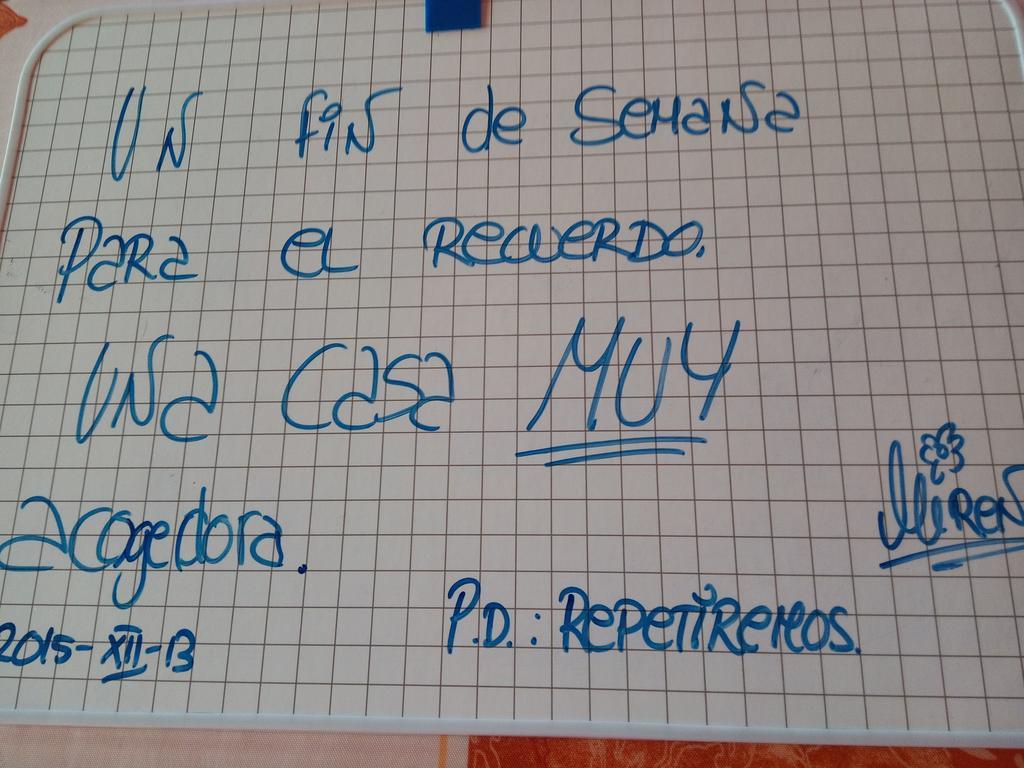 Un fin de semana
para el recuerdo.
Una casa MUY
acogedora.
Miren
P.D.: Repetiremos.
2015-XII-13